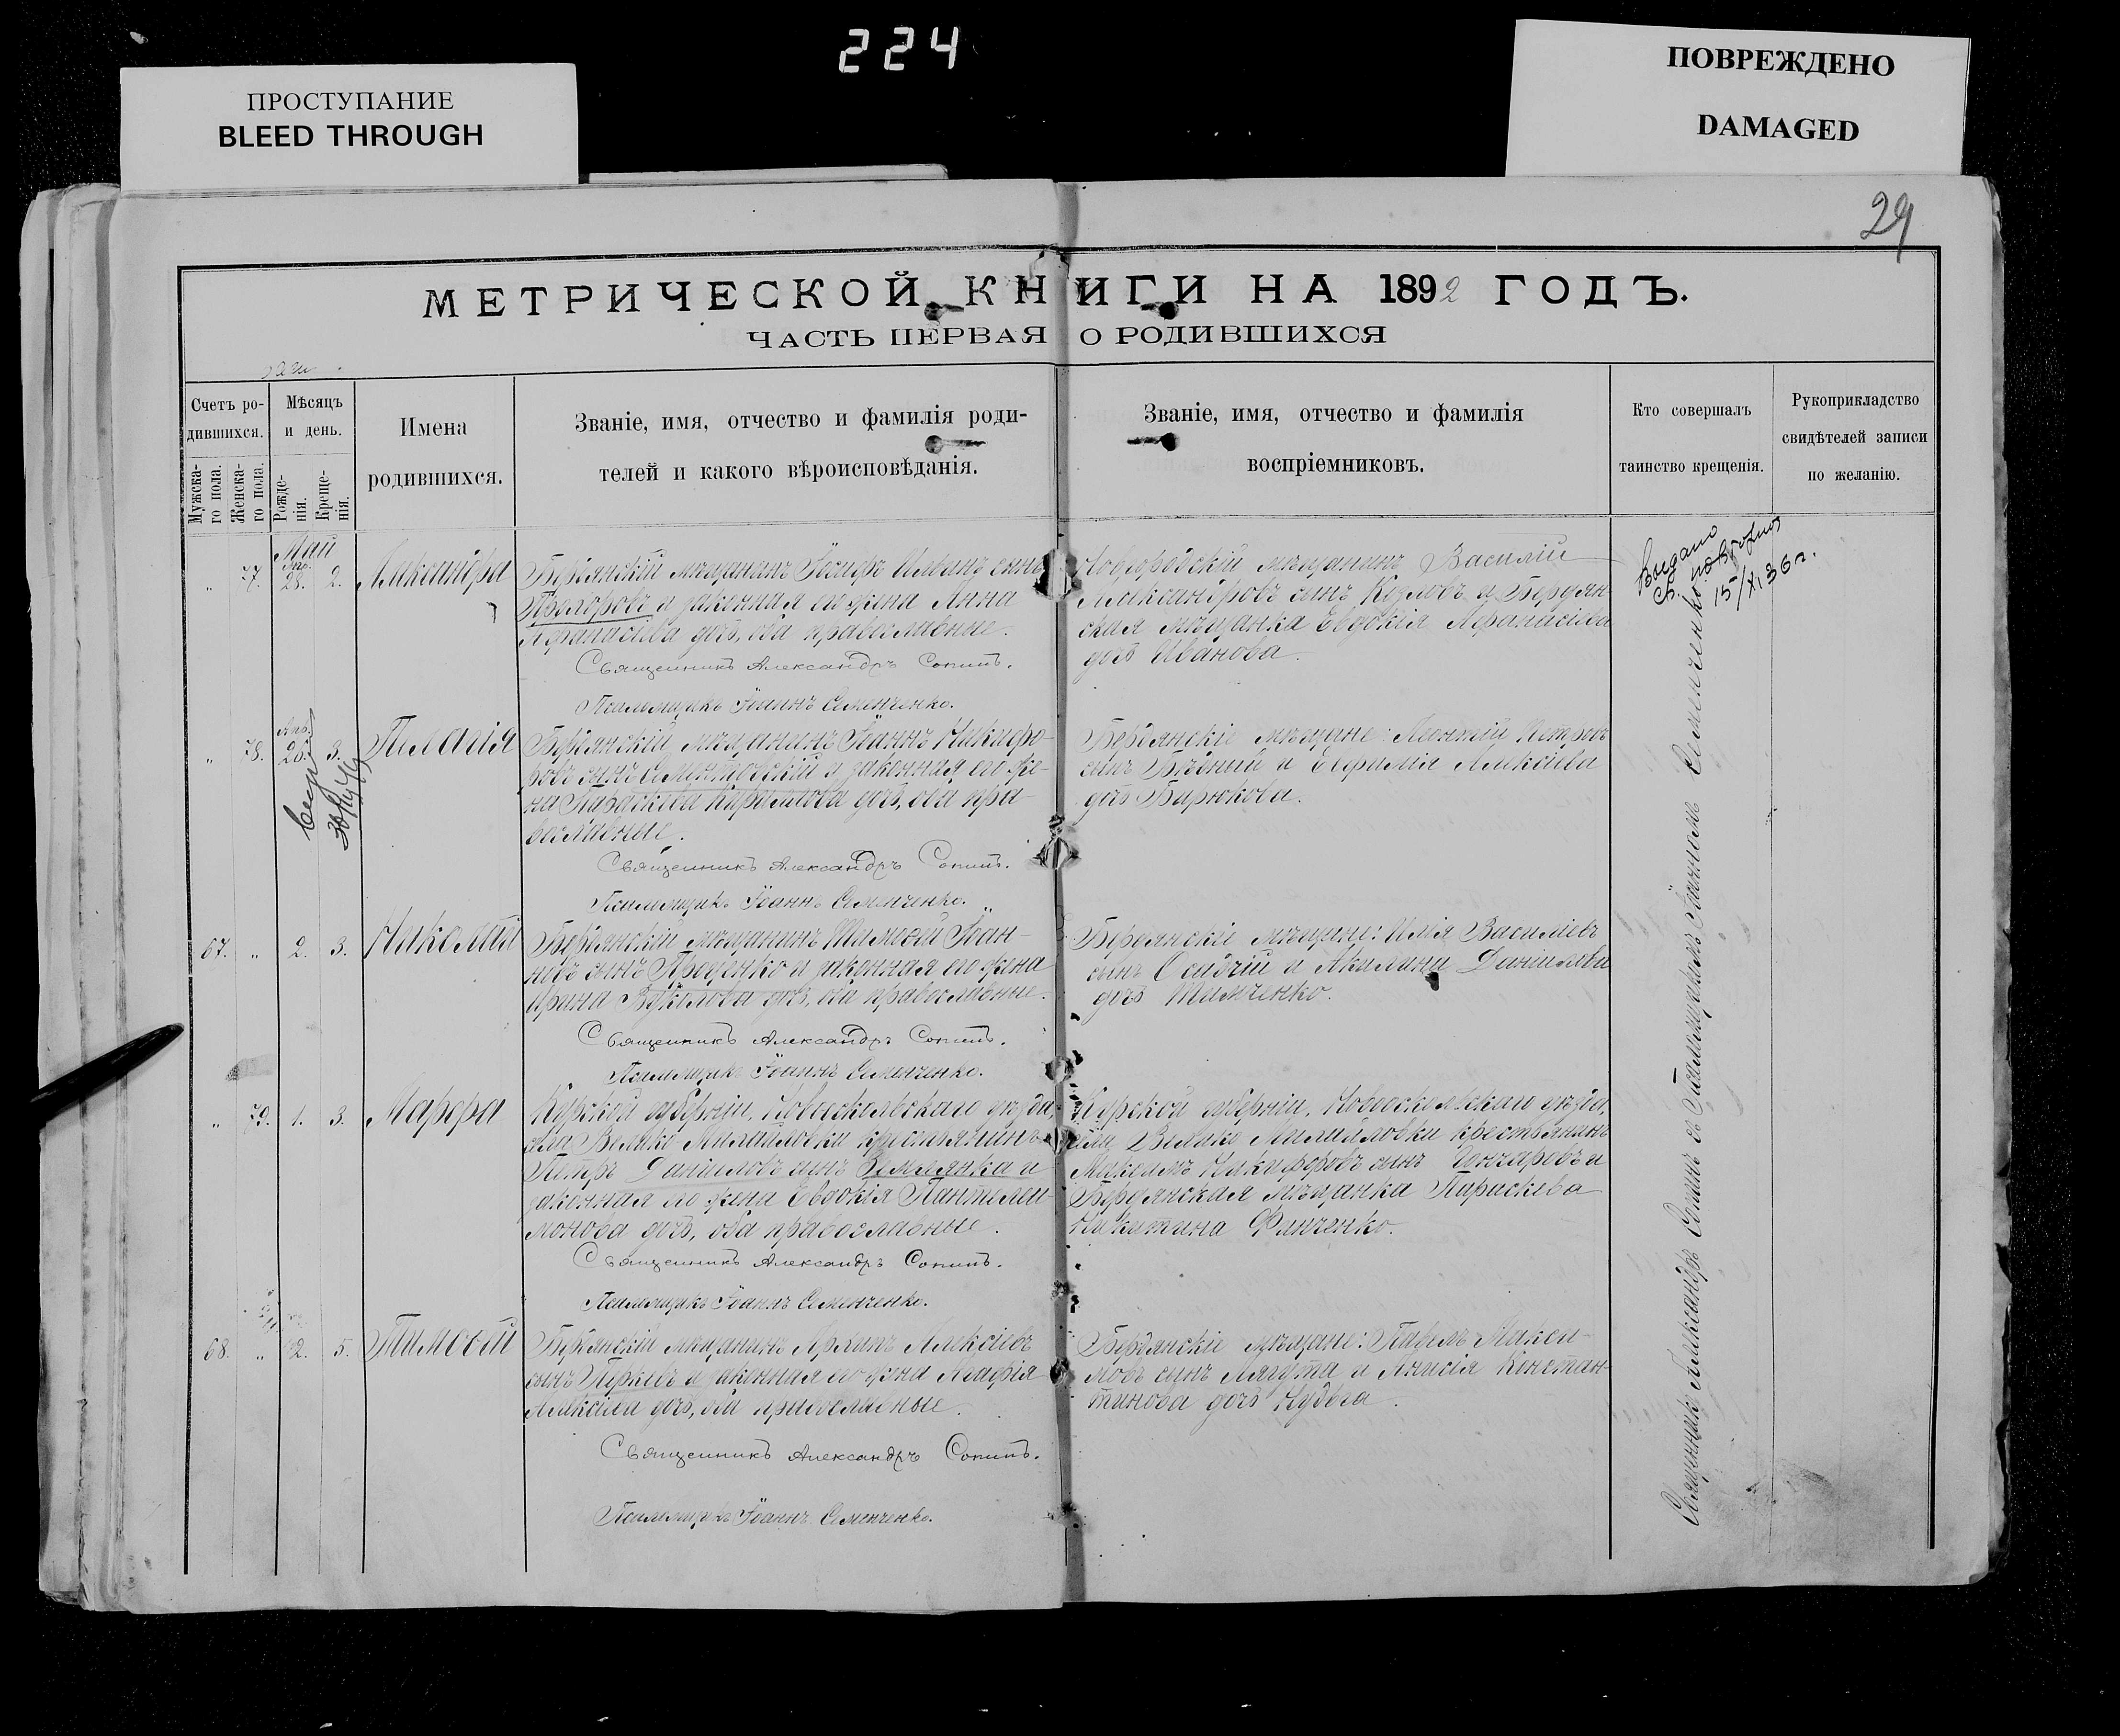 224
ПРОСТУПАНИЕ
BLEED THROUGH
ПОВРЕЖДЕНО
DAMAGED
29
МЕТРИЧЕСКОЙ КНИГИ НА 1892 ГОДЪ.
ЧАСТЬ ПЕРВАЯ О РОДИВШИХСЯ
Счетъ ро-
дившихся.
Мужска-
го пола.
Женска-
го пола.
Мѣсяцъ
и день.
Рожде-
нія.
Креще-
нія.
Имена
родившихся.
Званіе, имя, отчество и фамилія роди-
телей и какого вѣроисповѣданія.
Званіе, имя, отчество и фамилія
воспріемниковъ.
Кто совершалъ
таинство крещенія.
Рукоприкладство
свидѣтелей записи
по желанію.
Май
„ 77. 28. 2. Александра
Бердянскій мѣщанинъ Іосифъ сынъ
Прохоровъ и законная его жена Анна
Афанасіева дочь, оба православные.
Священникъ Александръ Сопинъ.
Псаломщикъ Іоаннъ Семенченко.
мѣщанинъ Василій
Александровъ сынъ Козловъ и Бердян-
ская мѣщанка Евдокія Афанасіева
дочь Иванова.
Выдано
повторно
15/XI 36 г.
Апр.
„ 78. 26. 3. Пелагія
Бердянскій мѣщанинъ Іоаннъ Никифо-
ровъ сынъ и законная его же-
на Параскева Кириллова дочь, оба пра-
вославные.
Священникъ Александръ Сопинъ.
Псаломщикъ Іоаннъ Семенченко.
Бердянскіе мѣщане: Леонтій Петровъ
сынъ Бѣдный и Евфимія Алексіева
дочь Бирюкова.
67. „ 2. 3. Николай
Бердянскій мѣщанинъ Тимоѳей Іоан-
новъ сынъ Проценко и законная его жена
Ирина Вуколова дочь, оба православные.
Священникъ Александръ Сопинъ.
Псаломщикъ Іоаннъ Семенченко.
Бердянскіе мѣщане: Илія Василіевъ
сынъ Осадчій и Акилина Даніилова
дочь Тимченко.
„ 79. 1. 3. Марфа
Курской губерніи, Новооскольскаго уѣзда,
села Велико-Михайловки крестьянинъ
Петръ Даніиловъ сынъ Землянка и
законная его жена Евдокія Пантелеи-
монова дочь, оба православные.
Священникъ Александръ Сопинъ.
Псаломщикъ Іоаннъ Семенченко.
Курской губерніи, Новооскольскаго уѣзда,
села Велико Михайловки крестьянинъ
Максимъ Никифоровъ сынъ Гончаровъ и
Бердянская мѣщанка Параскева
Никитина Финченко.
68. „ 2. 5. Тимоѳей
Бердянскій мѣщанинъ Архипъ Алексіевъ
сынъ и законная его жена Агафія
Алексіева дочь, оба православные.
Священникъ Александръ Сопинъ.
Псаломщикъ Іоаннъ Семенченко.
Бердянскіе мѣщане: Павелъ Макси-
мовъ сынъ Лягута и Анисія Констан-
тинова дочь
Священникъ Александръ Сопинъ съ Псаломщикомъ Іоанномъ Семенченко.